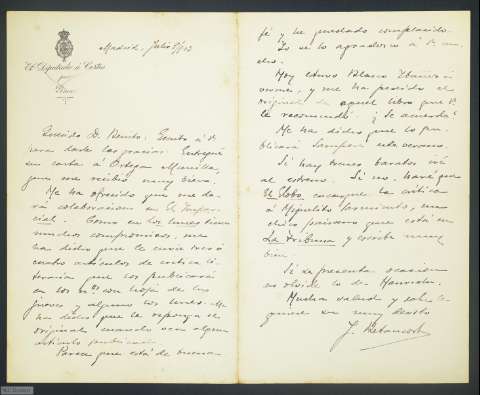 El Diputado á Cortes
por
Madrid, Julio 5/13
Querido D. Benito: Escribo á V.
para darle las gracias. Entregué
su carta á Ortega Munilla,
que me recibió muy bien.
Me ha ofrecido que me da-
rá colaboración en El Imparcial
cial. Como en los lunes tiene
muchos compromisos, me
ha dicho que le envíe tres ó
cuatro artículos de crítica li-
teraria que los publicará
en los nºs con hoja de los
jueves y alguno los lunes. Me
ha dicho que le reponga el
original cuando vea algún
artículo publicado.
Parece que está de buena
fé y he quedado complacido.
Yo se lo agradezco á V. mu-
cho.
Hoy estuvo Blasco Ibáñez á
verme, y me ha pedido el
original de aquel libro que V.
le recomendó. ¿Se acuerda?
Me ha dicho que lo pu-
blicará Sempere este verano.
Si hay trenes baratos iré
al estreno. Si no, haré que
El Globo encargue la crítica
á Miguelito Sarmiento, un
chico paisano que está en
La Tribuna y escribe muy
bien.
Si se presenta ocasión
no olvide lo de
Mucha salud y sabe le
quiere su muy devoto
J. Betancort